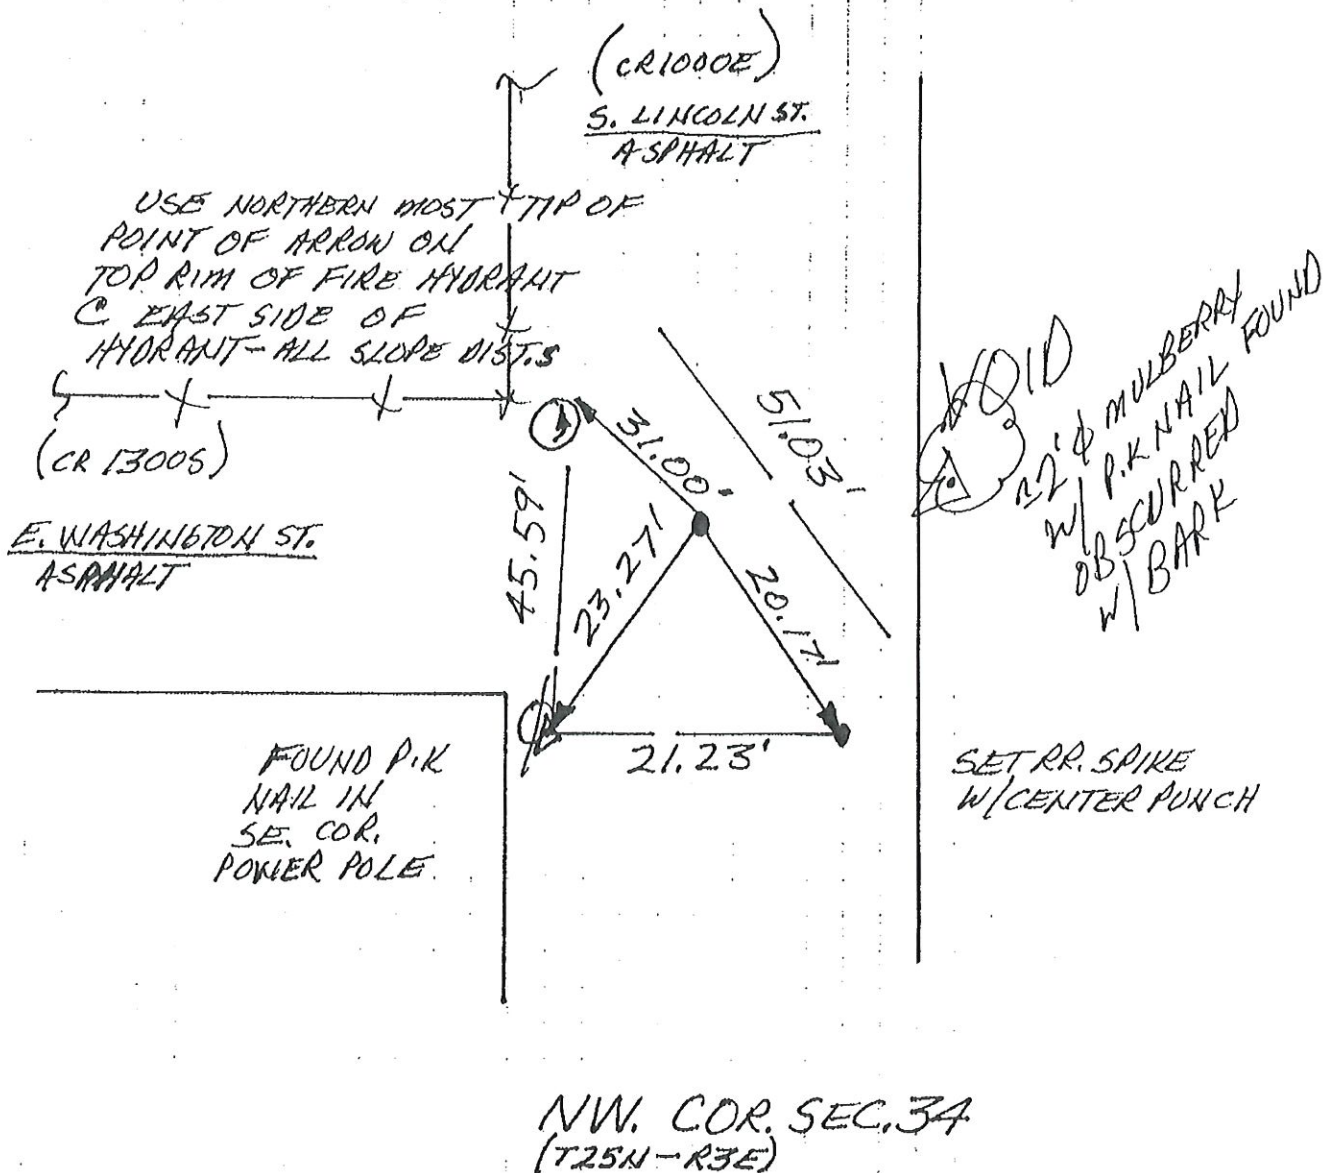 (CR1000E)
S. LINCOLN ST.
ASPHALT
USE NORTHERN MOST TIP OF
POINT OF ARROW ON
TOP RIM OF FIRE HYDRANT
@ EAST SIDE OF
HYDRANT-ALL SLOPE DIST.S
(CR 1300S)
E. WASHINGTON ST.
ASPHALT
31.00'
51.03'
45.59'
23.27'
20.17'
21.23'
VOID
22"ϕ MULBERRY
W/ P.K NAIL FOUND
OBSCURRED
W/ BARK
FOUND P.K
NAIL IN
SE. COR.
POWER POLE
SET RR. SPIKE
W/CENTER PUNCH
NW. COR. SEC. 34
(T25N-R3E)